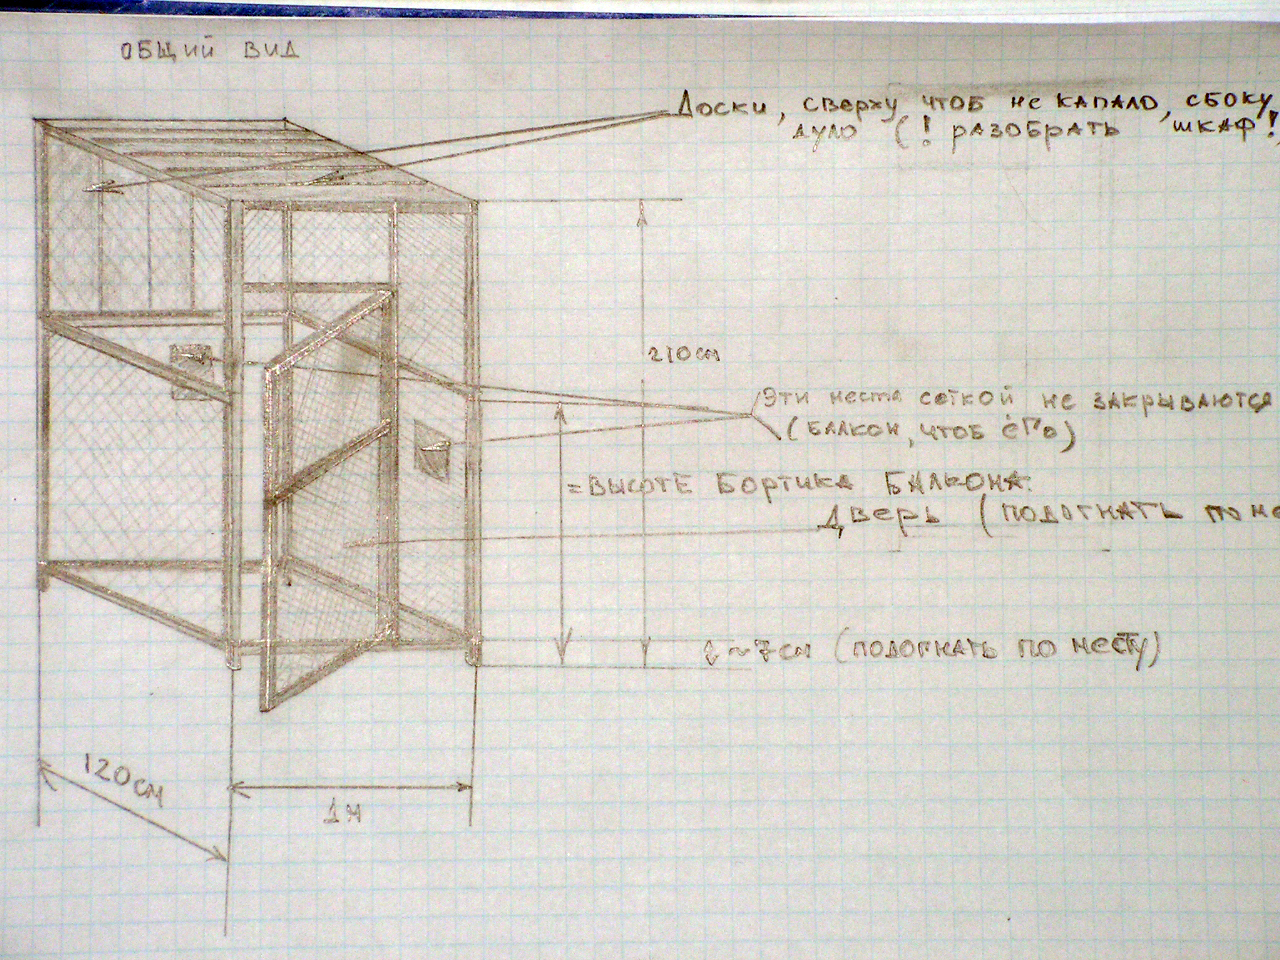 ОБЩИЙ ВИД
ДОСКИ, СВЕРХУ ЧТОБ НЕ КАПАЛО, СБОКУ,
ДУЛО (! РАЗОБРАТЬ ШКАФ!)
210СМ
ЭТИ МЕСТА СЕТКОЙ НЕ ЗАКРЫВАЮТСЯ
(БАЛКОН, ЧТОБ ЕГО)
=ВЫСОТЕ БОРТИКА БАЛКОНА.
ДВЕРЬ (ПОДОГНАТЬ ПО МЕ
~7СМ (ПОДОГНАТЬ ПО МЕСТУ)
120СМ
1М